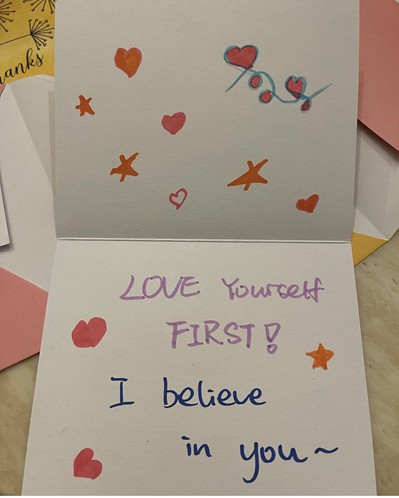 hanks
LOVE Yourself
FIRST!
I believe
in you~